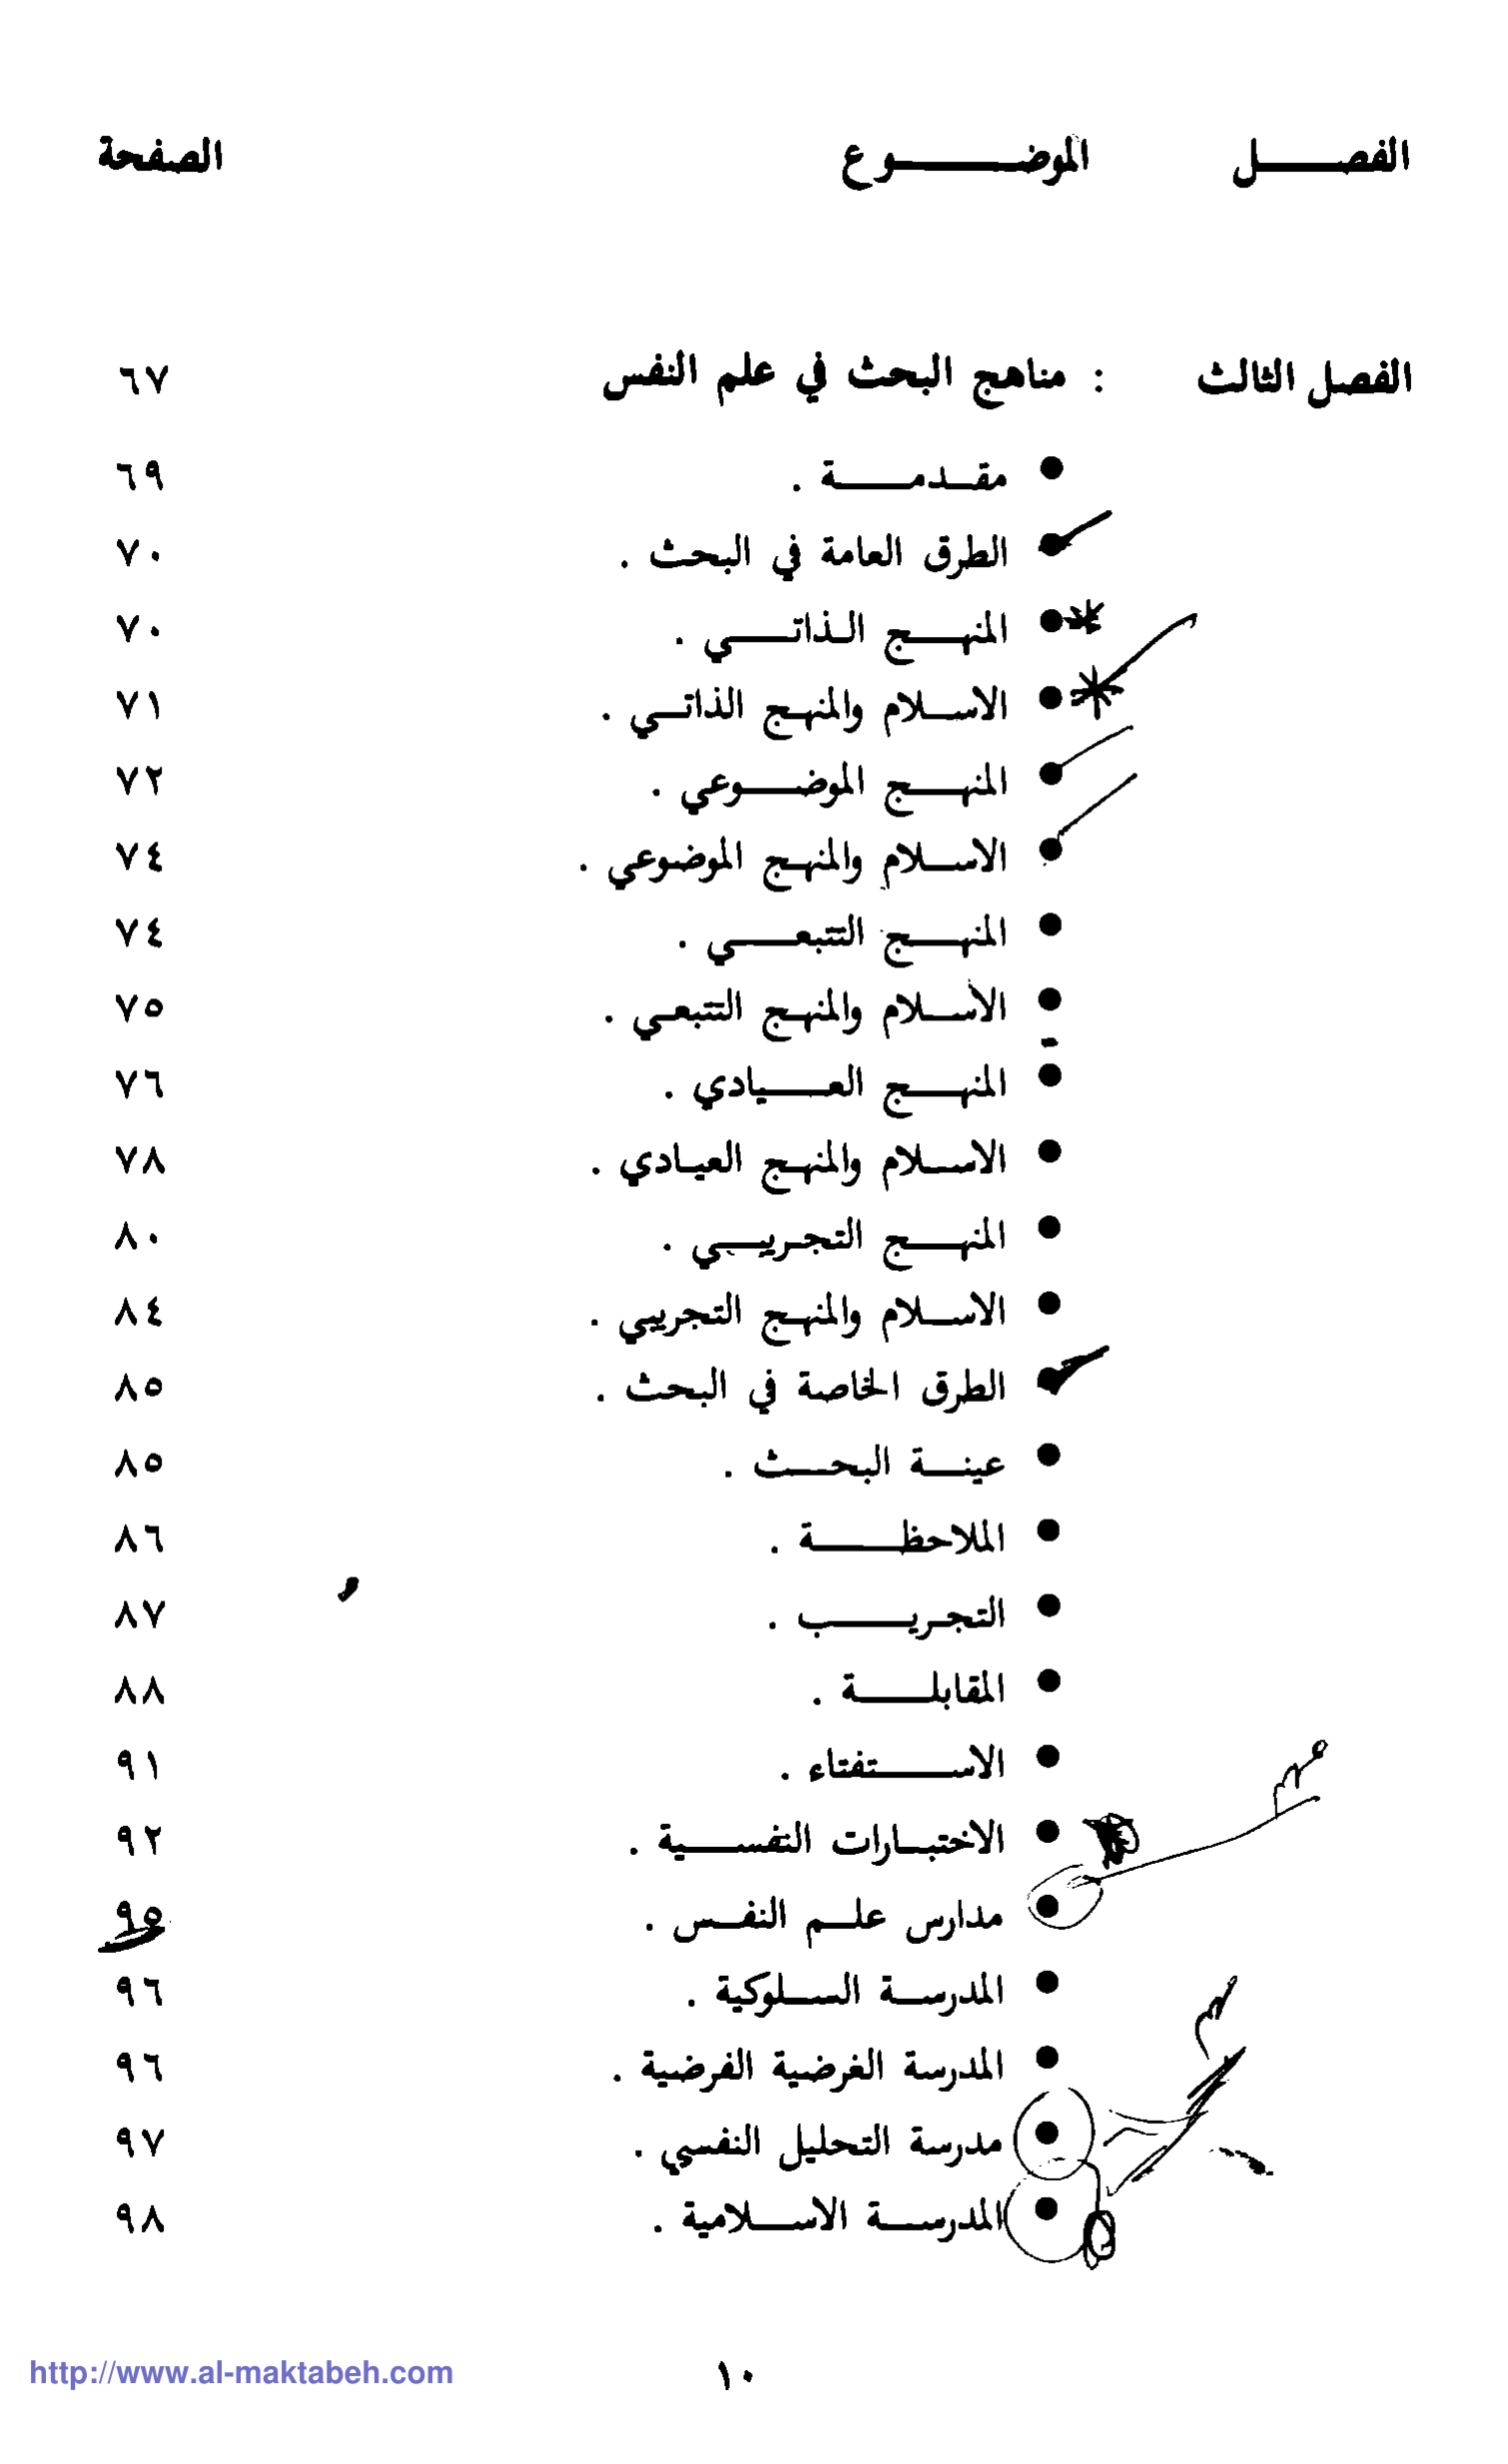 الفصل الموضوع الصفحة
الفصل الثالث : مناهج البحث في علم النفس ٦٧
● مقدمة . ٦٩
● الطرق العامة في البحث . ٧٠
● المنهج الذاتي . ٧٠
● الاسلام والمنهج الذاتي . ٧١
● المنهج الموضوعي . ٧٢
● الاسلام والمنهج الموضوعي . ٧٤
● المنهج التتبعي . ٧٤
● الأسلام والمنهج التتبعي . ٧٥
● المنهج العيادي . ٧٦
● الاسلام والمنهج العيادي . ٧٨
● المنهج التجريبي . ٨٠
● الاسلام والمنهج التجريبي . ٨٤
● الطرق الخاصة في البحث . ٨٥
● عينة البحث . ٨٥
● الملاحظة . ٨٦
● التجريب . ٨٧
● المقابلة . ٨٨
● الاستفتاء . ٩١
● الاختبارات النفسية . ٩٢
● مدارس علم النفس . ٩٥
● المدرسة السلوكية . ٩٦
● المدرسة الغرضية الفرضية . ٩٦
● مدرسة التحليل النفسي . ٩٧
● المدرسة الاسلامية . ٩٨
١٠
http://www.al-maktabeh.com